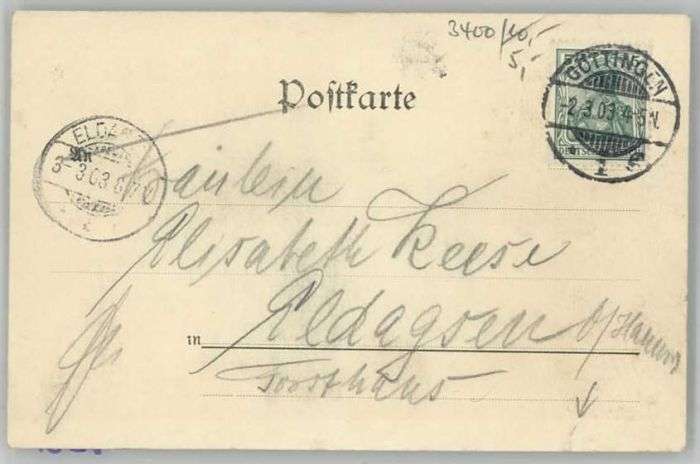 3400/10,-
5,-
Postkarte
GÖTTINGEN
-2.3.03.4-5N.
1
ELDA
3.03.
An
Fräulein
Elisabeth Keese
in Eldagsen b/Hannov
Forsthaus